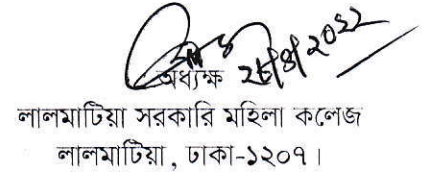 ২৮/৪/২০২২
অধ্যক্ষ
লালমাটিয়া সরকারি মহিলা কলেজ
লালমাটিয়া, ঢাকা-১২০৭।